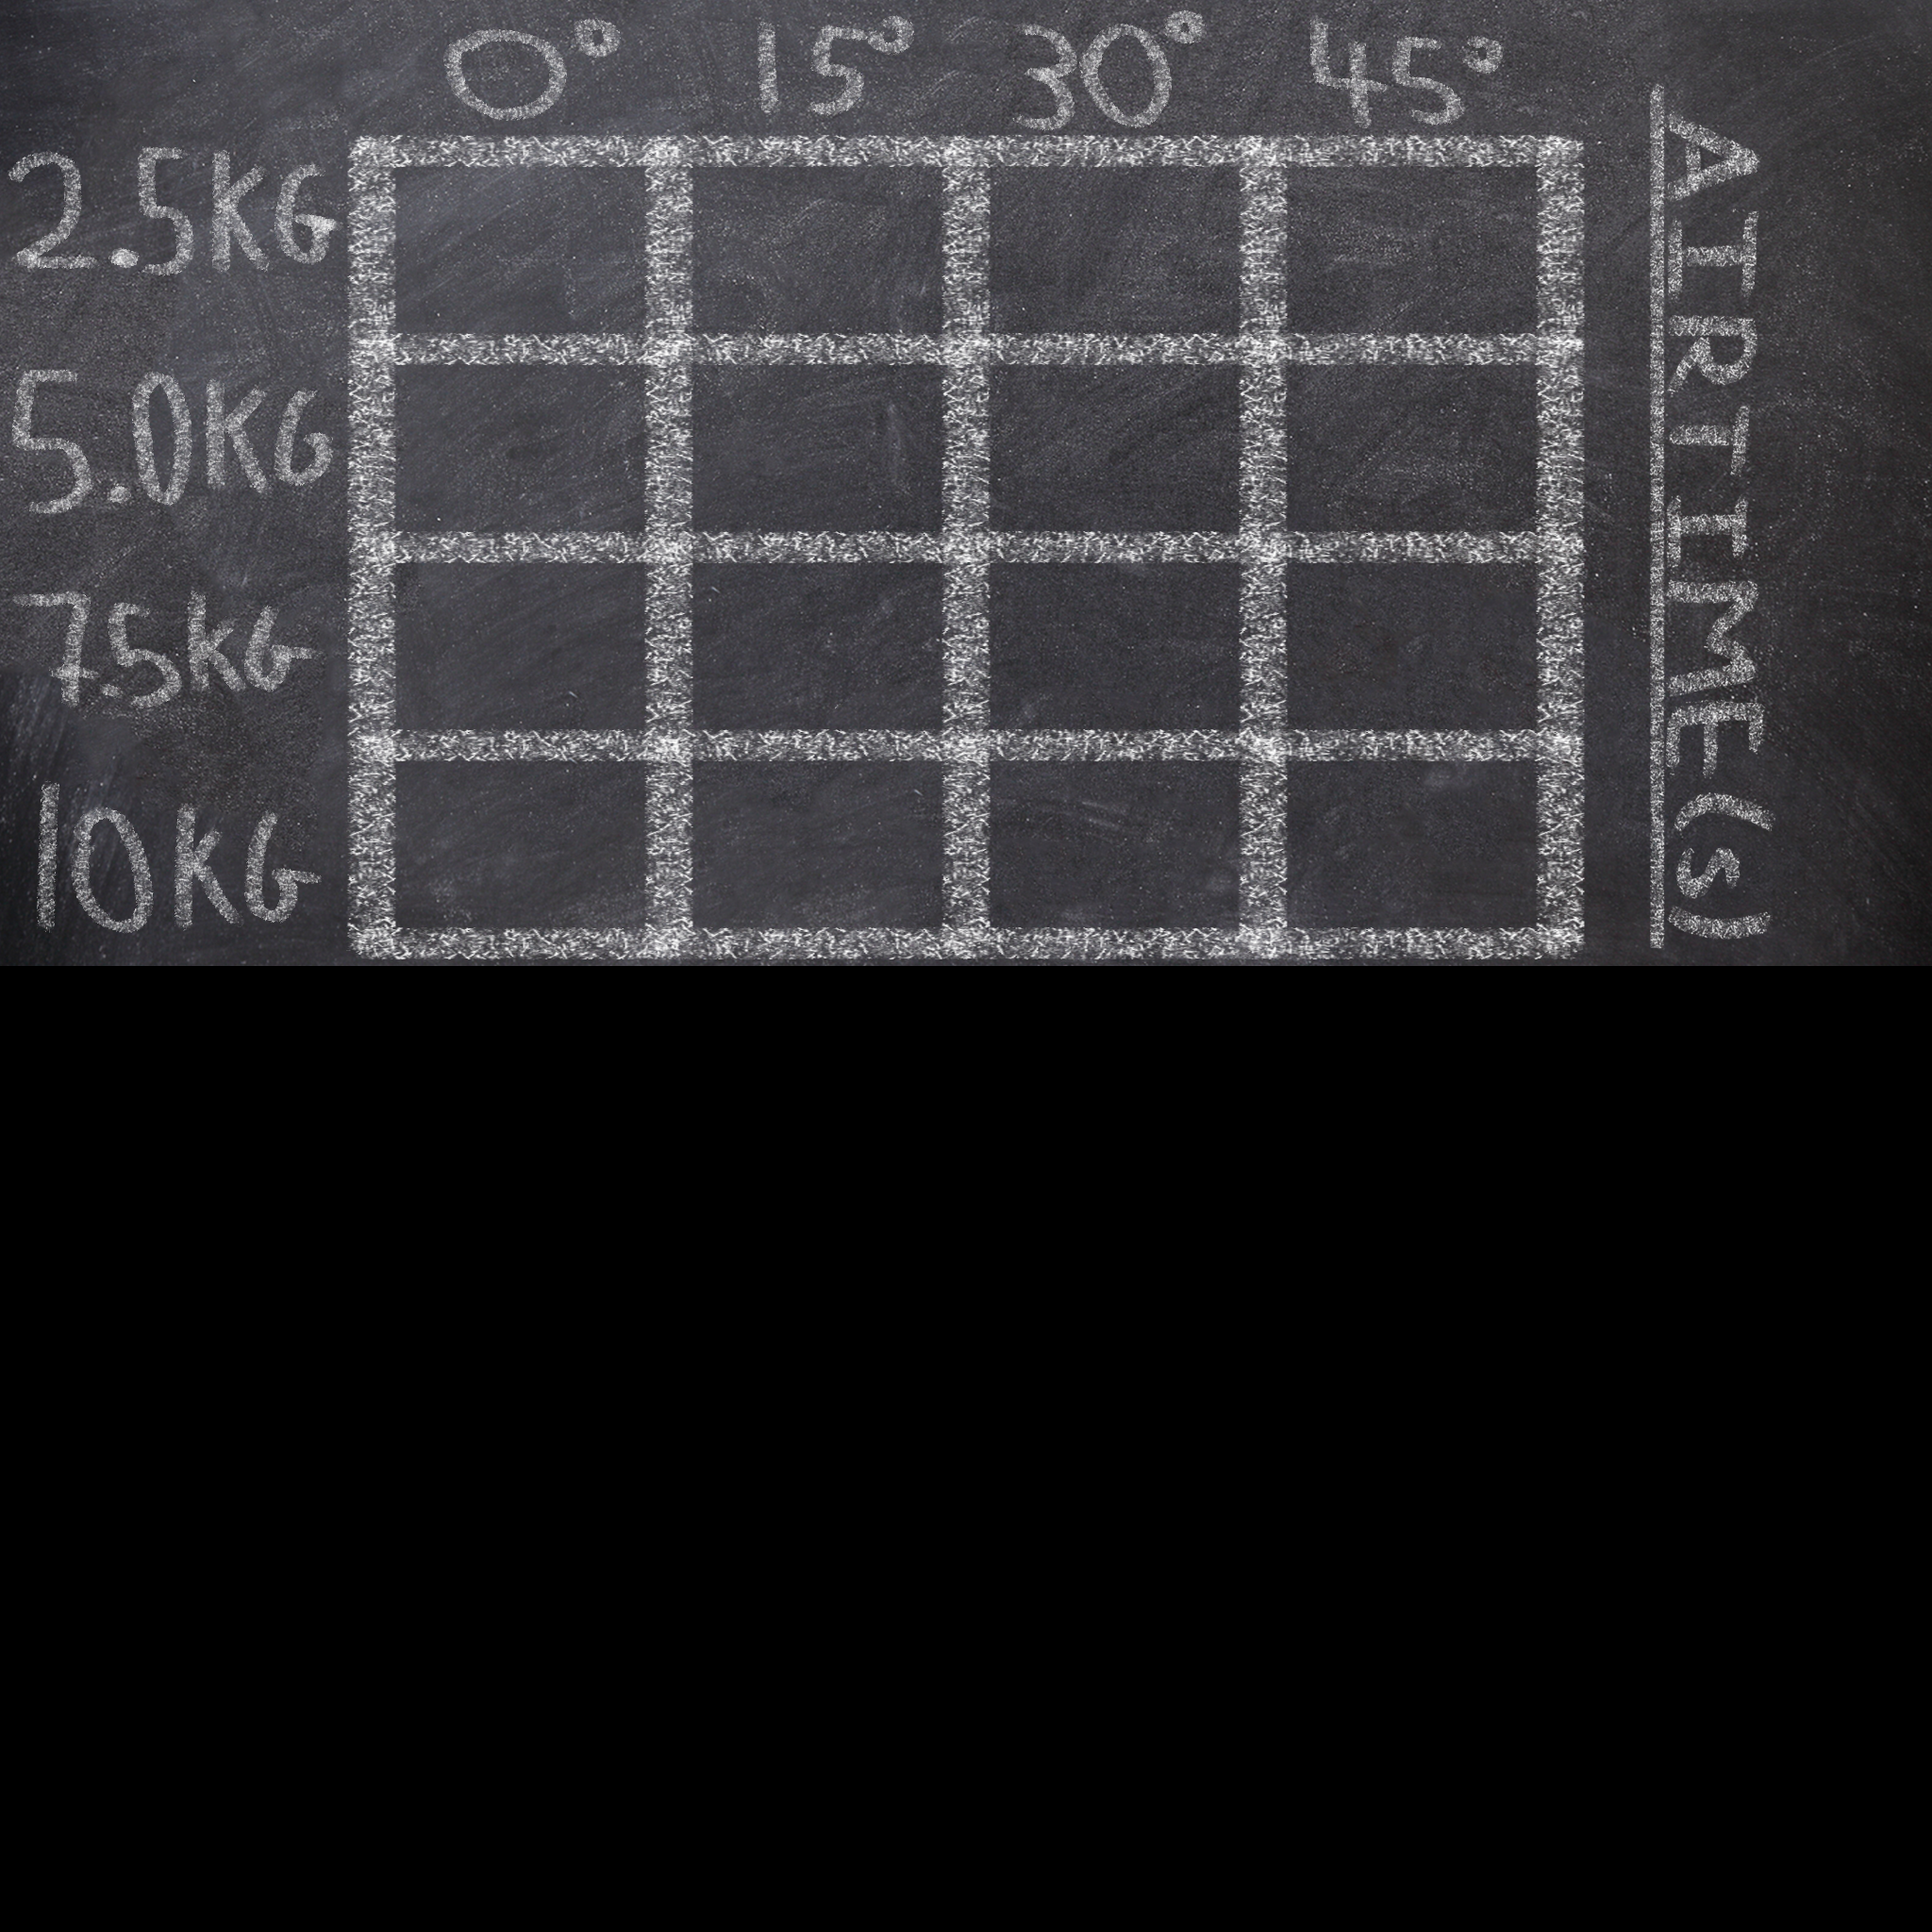 0° 15° 30° 45°
2.5KG
5.0KG
7.5KG
10KG
AIRTIME(s)